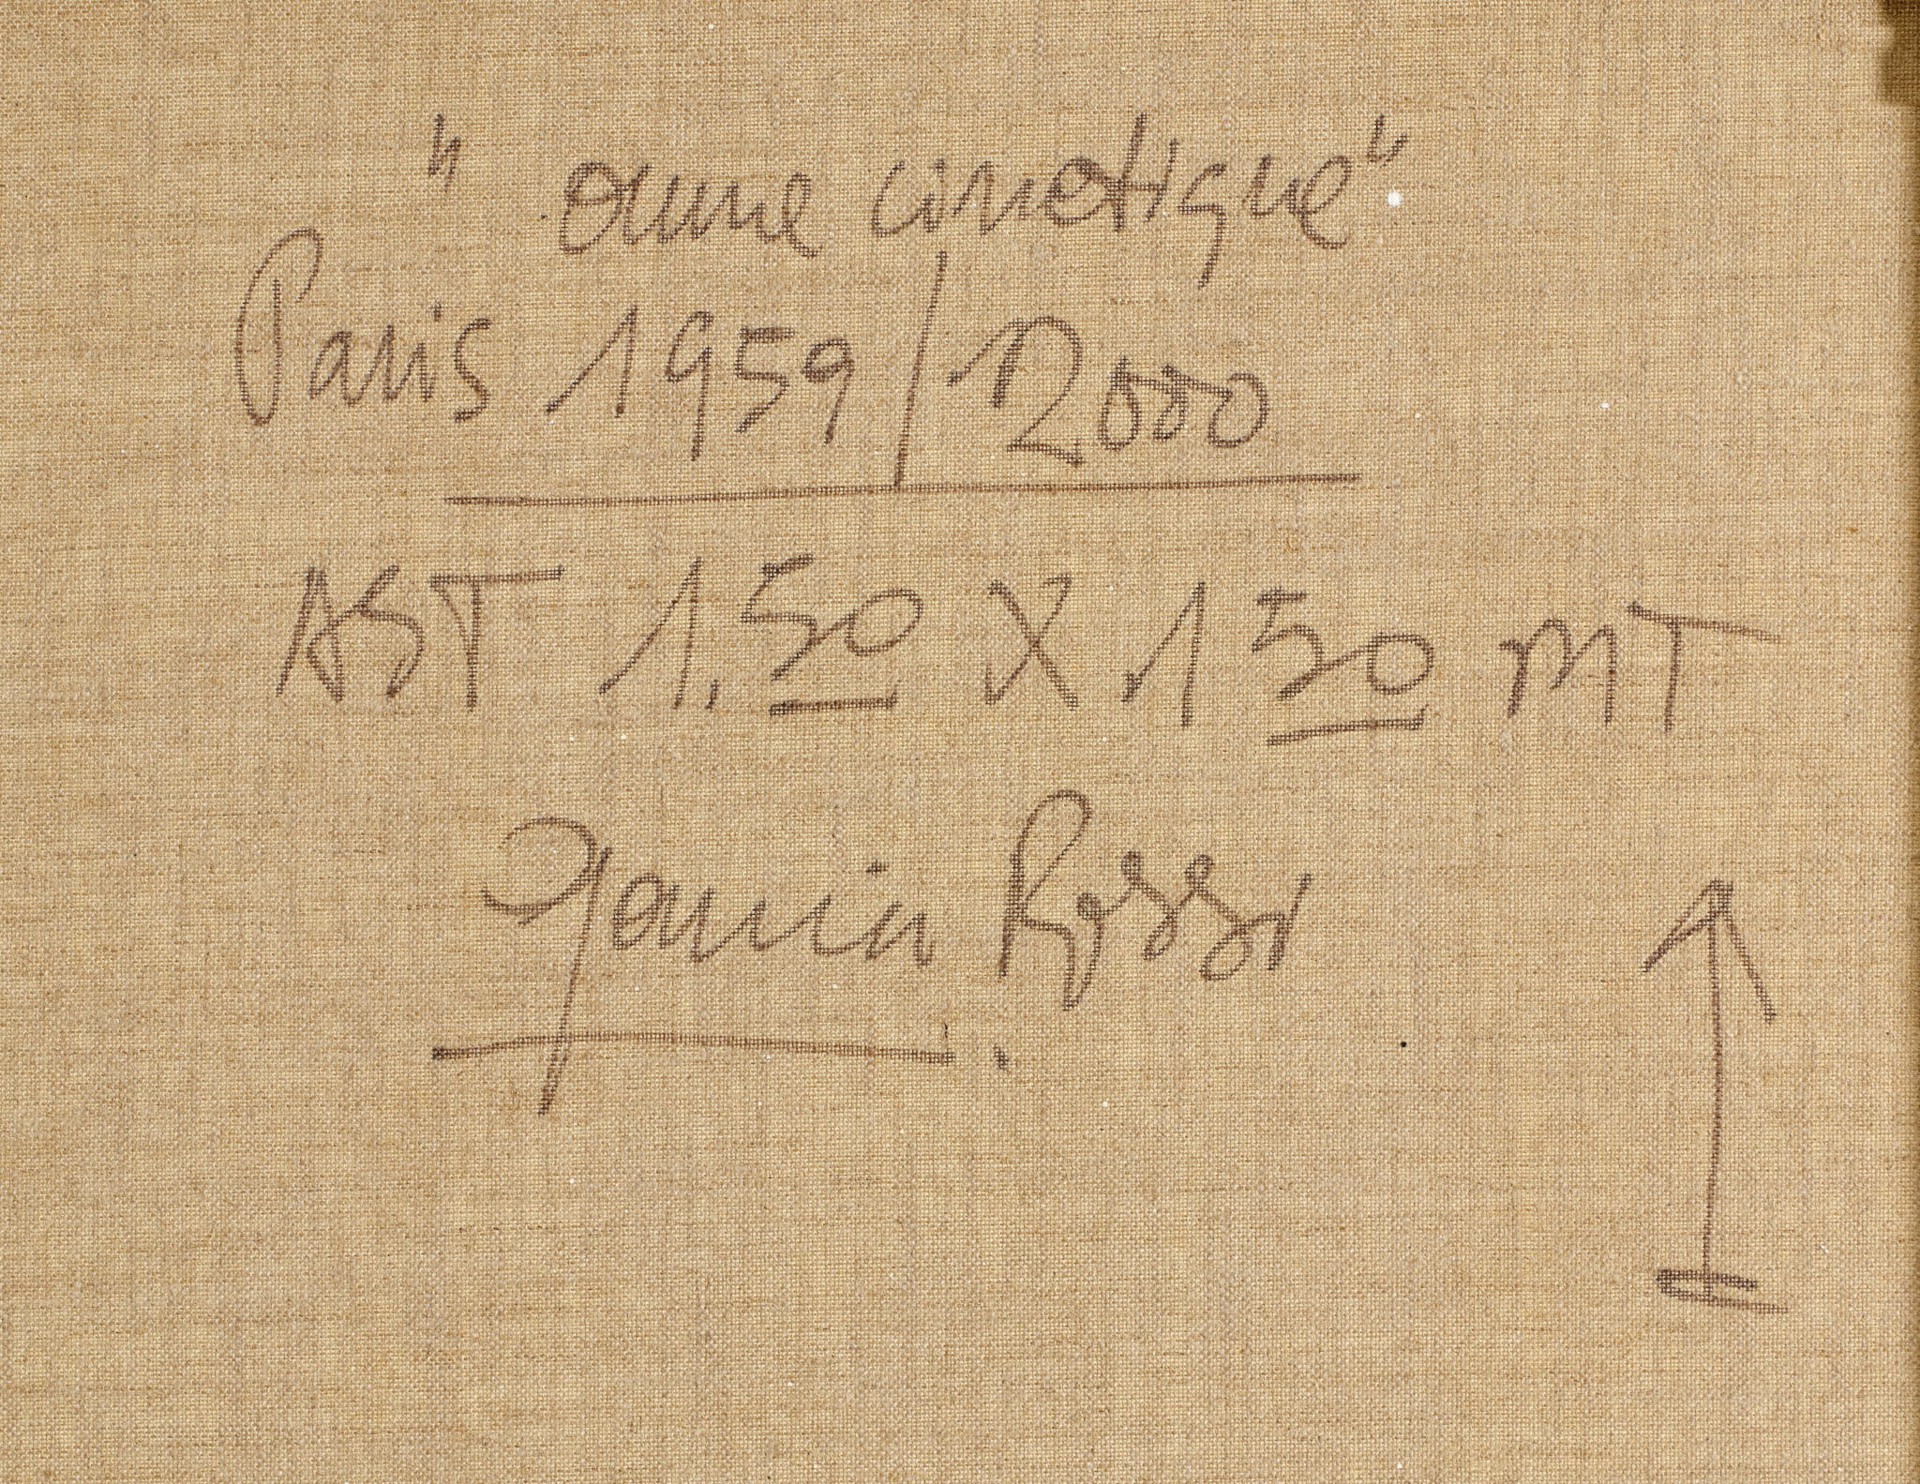 "œuvre cinetique"
Paris 1959/2000
AST 1.50 X 1 50 MT
Garcia Rossi